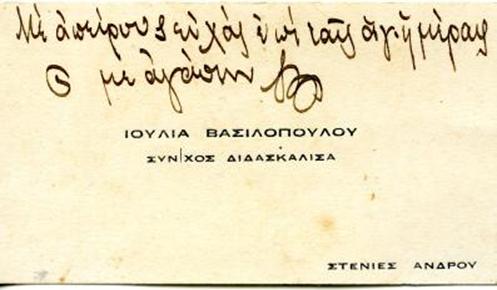 Μὲ ἀπείρους εὐχὰς ἐπὶ ταῖς ἁγ. ἡμέραις
μὲ ἀγάπην
ΙΟΥΛΙΑ ΒΑΣΙΛΟΠΟΥΛΟΥ
ΣΥΝ|ΧΟΣ ΔΙΔΑΣΚΑΛΙΣΑ
ΣΤΕΝΙΕΣ ΑΝΔΡΟΥ